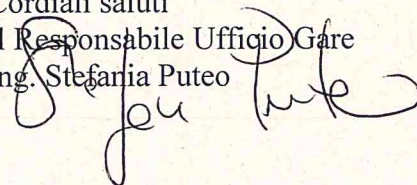 Cordiali saluti
l Responsabile Ufficio Gare
ng. Stefania Puteo